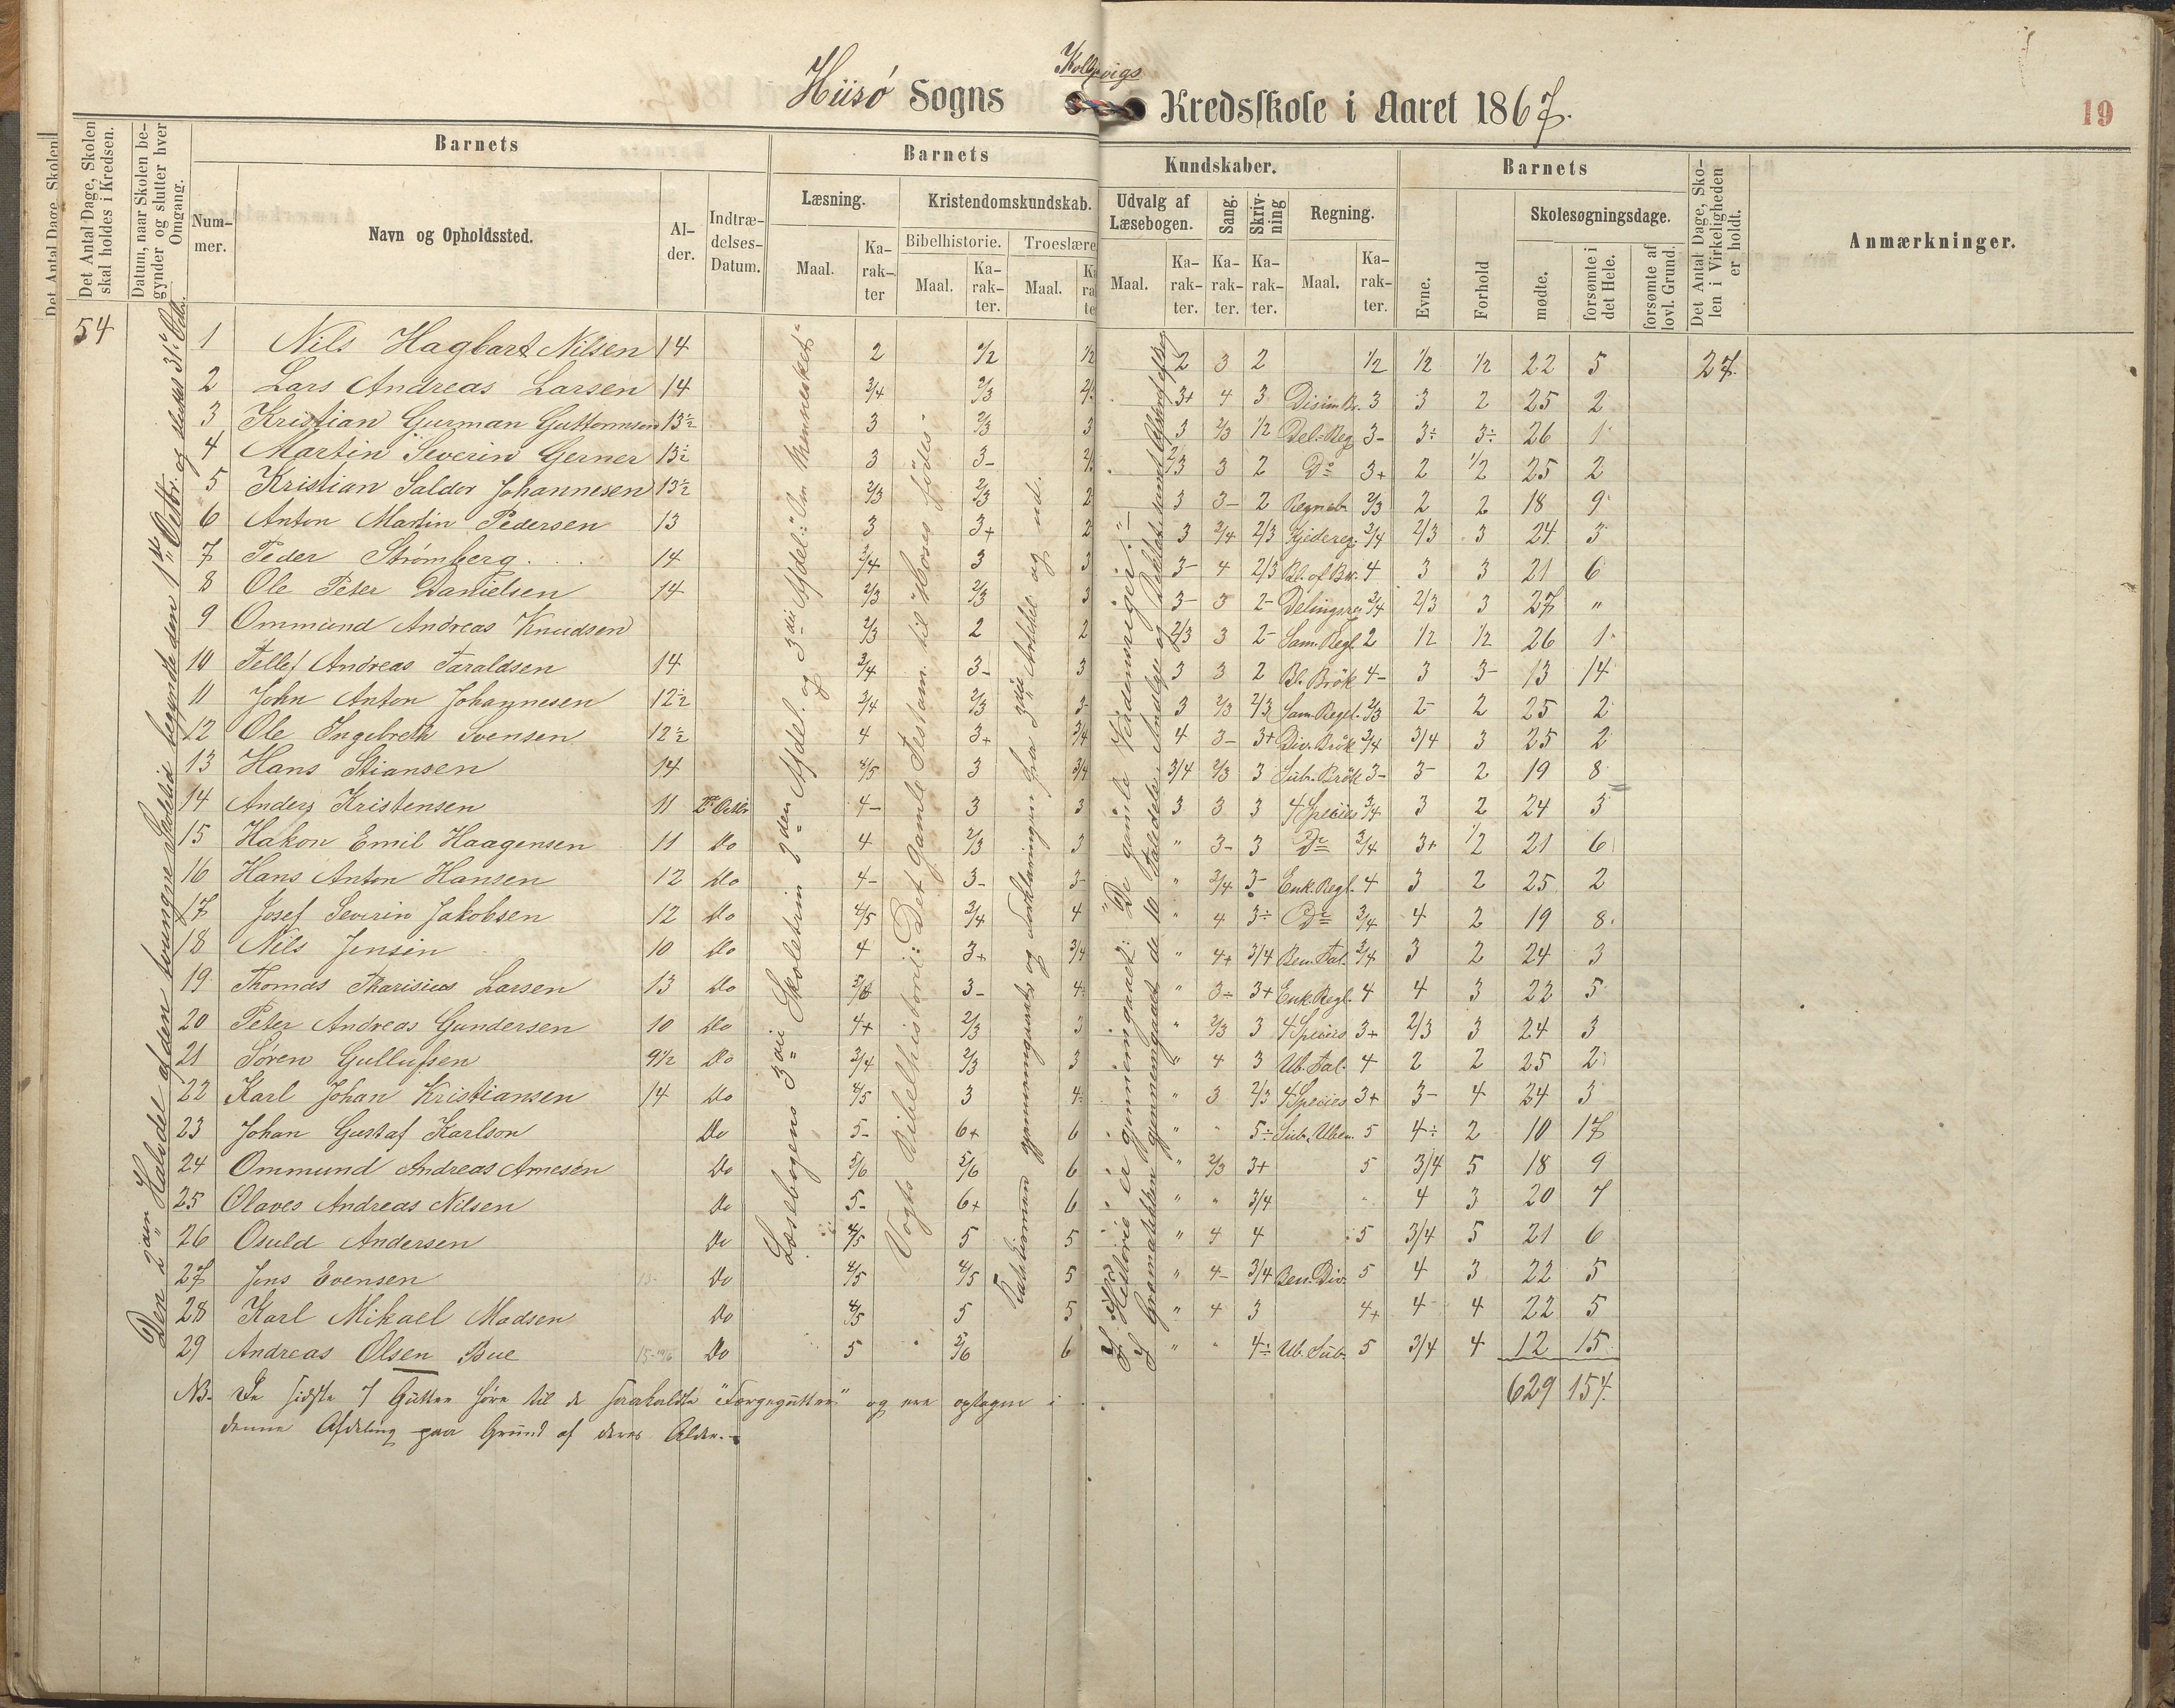 Kolbjvigs
Hiisö Sogns Kredsskole i Aaret 1867.
19
Det Antal Dage, Skolen
Det Antal Dage, Skolen skal holdes i Kredsen.
Datum, naar Skolen begynder og slutter hver Omgang.
Barnets
Barnets
Kundskaber.
Barnets
Nummer.
Navn og Opholdssted.
Alder.
Indtrædelses-Datum.
Læsning.
Kristendomskundskab.
Udvalg af Læsebogen.
Sang.
Skrivning
Regning.
Evne.
Forhold
Skolesøgningsdage.
Det Antal Dage, Skolen i Virkeligheden er holdt.
Anmærkninger.
Bibelhistorie.
Troeslære
Maal. Karakter Maal. Karakter. Maal.
Maal. Karakter. Karakter. Karakter. Maal. Karakter.
mødte. forsømte i det Hele. forsømte af lovl. Grund.
54
Den 2den Halvdel af den tvungne Skoletid begyndte den 1ste Octbr. og sluttes 31te Octb.
Læsebogens 3die Skoletrin 2den Afdel. og 3die Afdel: "Om Mennesket"
Vogts Bibelhistorie: Det gamle Testam. til "Moses födes"
Katekismen gjennemgaaet og Forklaringen fra 3die Artikkel og ud.
I Historie er gjennemgaaet: "De gamle Nordmænd
1 Nils Hagbart Nilsen 14 2 1/2 1/2 2 3 2 1/2 1/2 1/2 22 5 27.
2 Lars Andreas Larsen 14 3/4 2/3 3+ 4 3 3 3 2 25 2
3 Kristian Gurman Guttormsen 13½ 3 2/3 3 3 2/3 1/2 Del=Reg 3- 3÷ 3÷ 26 1
4 Martin Severin Gerner 13½ 3 3- 2/3 3 2 Do 3+ 2 1/2 25 2
5 Kristian Salder Johannesen 13½ 2/3 2/3 2 3 3- 2 Regneb. 2/3 2 2 18 9
6 Anton Martin Pedersen 13 3 3+ 2 3 3/4 2/3 Kjedereg. 3/4 2/3 3 24 3
7 Peder Strömberg 14 3/4 3 3 3- 4 2/3 Bl. af Br. 4 3 3 21 6
8 Ole Peter Danielsen 14 2/3 2/3 3 3- 3 2- Delingsreg 3/4 2/3 3 27 "
9 Ommund Andreas Knudsen 2/3 2 2 2/3 3 2- Sam. Regl. 2 1/2 1/2 26 1
10 Tellef Andreas Taraldsen 14 3/4 3- 3 3 3 2 Bl. Brök 4- 3 3- 13 14
11 John Anton Johannesen 12½ 3/4 2/3 3- 3 2/3 2/3 Sam. Regel. 2/3 2- 2 25 2
12 Ole Ingebreth Svensen 12½ 4 3+ 3/4 4 3- 3+ Div. Brök 3/4 3/4 3 25 2
13 Hans Stiansen 14 4/5 3 3/4 3/4 2/3 3 Sub. Brök 3- 3- 2 19 8
14 Anders Kristensen 11 2de Octbr 4- 3 3 3 3 3 4 Species 3/4 3 2 24 3
15 Hakon Emil Haagensen 11 Do 4 2/3 3 " 3- 3 Do 3/4 3+ 1/2 21 6
16 Hans Anton Hansen 12 Do 4- 3- 3- " 3/4 3- Enk. Regl. 4 3 2 25 2
17 Josef Severin Jakobsen 12 Do 4/5 3/4 4 " 4 3÷ Do 3/4 4 2 19 8
18 Nils Jensen 10 Do 4 3+ 3/4 " 4+ 3/4 Ben. Tal. 3/4 3 2 24 3
19 Thomas Tharisius Larsen 13 Do 5/6 3- 4 " 3÷ 3+ Enk. Regl. 4 4 3 22 5
20 Peter Andreas Gundersen 10 Do 4+ 2/3 3 " 2/3 3 4 Species 3+ 2/3 3 24 3
21 Sören Gullufsen 9½ Do 3/4 2/3 3 " 4 3 Ub. Tal. 4 2 2 25 2
22 Karl Johan Kristiansen 14 Do 4/5 3 4 " 3 2/3 4 Species 3+ 3- 4 24 3
23 Johan Gustaf Karlson Do 5- 6+ 6 " " 5÷ Sub. Uben. 5 4÷ 2 10 17
24 Ommund Andreas Arnesen Do 5/6 5/6 6 " 2/3 3+ 5 3/4 5 18 9
25 Olaves Andreas Nilsen Do 5- 6+ 6 " " 3/4 " 4 3 20 7
26 Osuld Andersen Do 4/5 5 5 " 4 4 5 3/4 5 21 6
27 Jens Evensen Do 4/5 4/5 5 " 4- 3/4 Ben. Div. 5 4 3 22 5
28 Karl Mikael Madsen Do 4/5 5 5 " 4 3 4+ 4 4 22 5
29 Andreas Olsen Bue Do 5 5/6 6 " " 4÷ Ub. Sub. 5 3/4 4 12 15
629 154.
NB. De sidste 7 Gutter høre til de saakaldte "Færgegutter" og ere optagne i
denne Afdeling paa Grund af deres Alder.